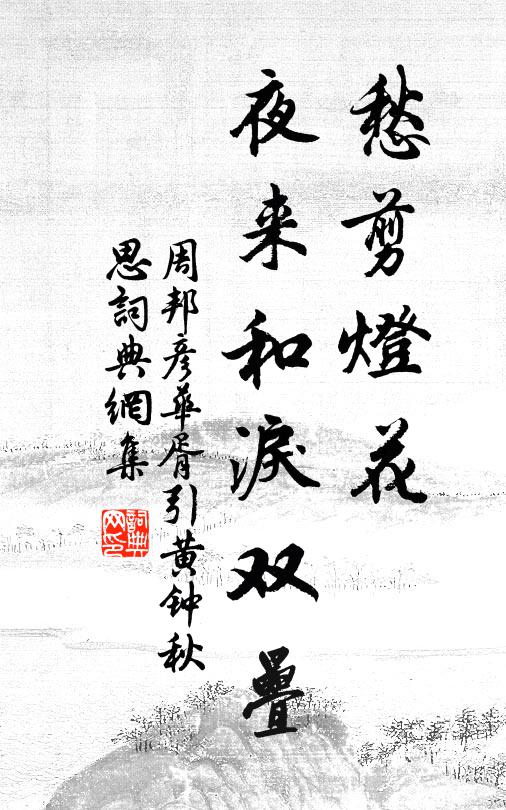 愁剪燈花
夜来和淚双疊
周邦彦華胥引黄钟秋
思詞典網集
詞典网印